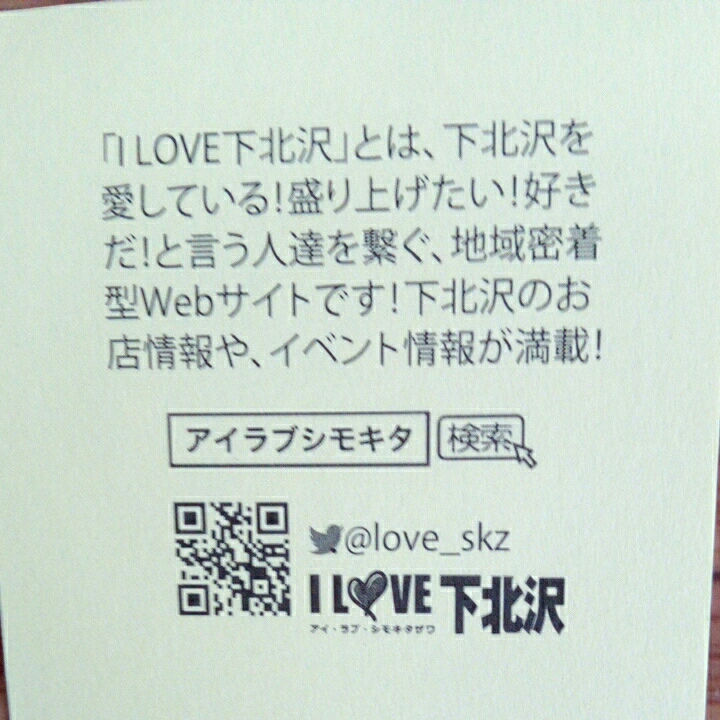 「I LOVE下北沢」とは、下北沢を
愛している!盛り上げたい!好き
だ!と言う人達を繋ぐ、地域密着
型Webサイトです!下北沢のお
店情報や、イベント情報が満載!
アイラブシモキタ 検索
@love_skz
I LOVE 下北沢
アイ・ラブ・シモキタザワ